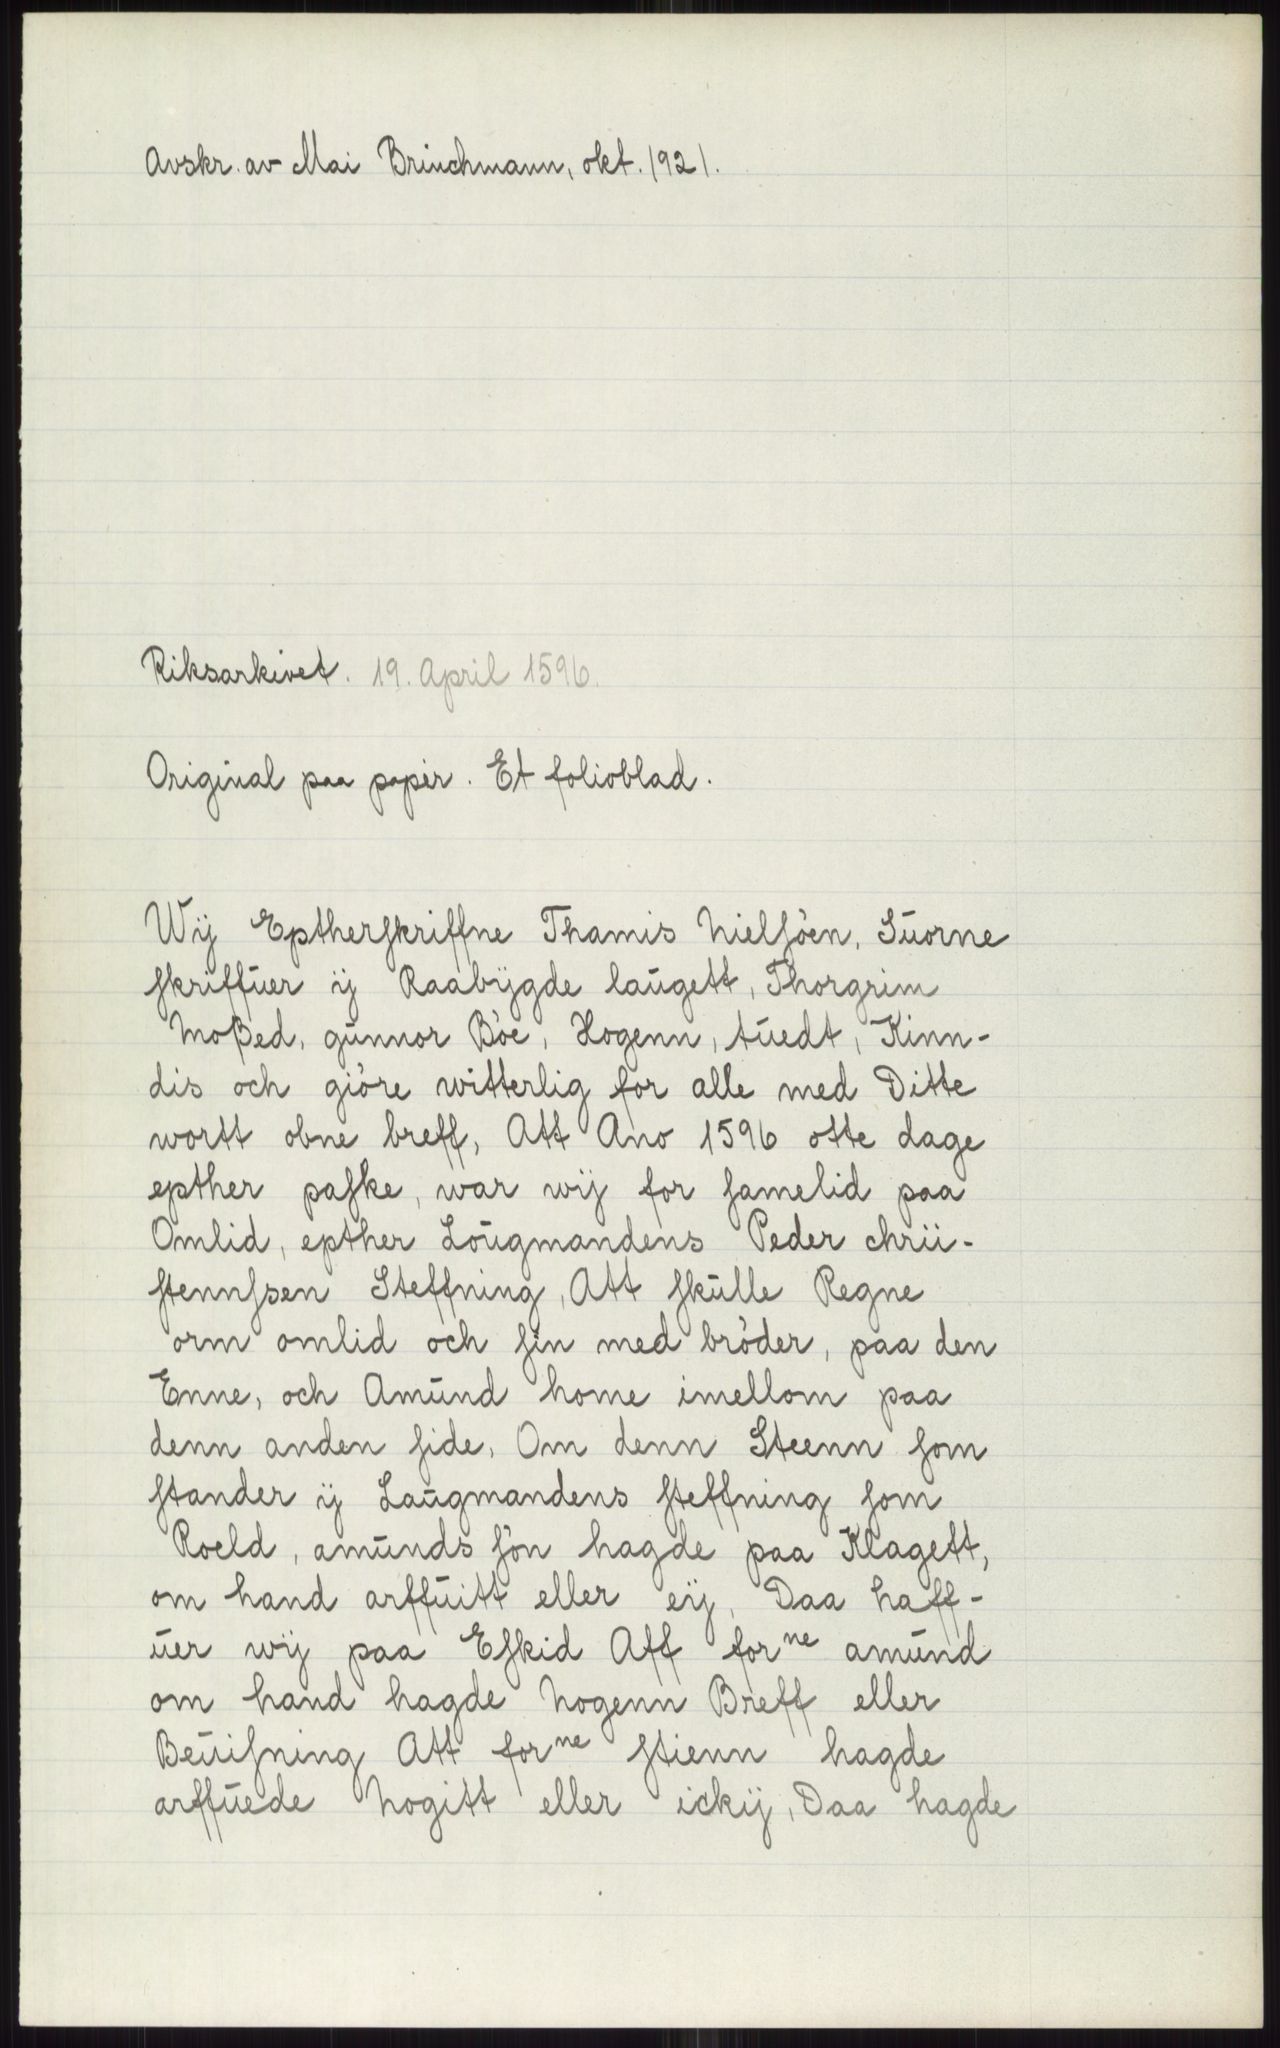 Avskr. av Mai Brinchmann, okt. 1921.
Riksarkivet. 19. April 1596.
Original paa papir. Et folioblad.
Wij Eptherskriffne Thamis Nielsöen, Suorne
skriffuer ij Raabijgde laugett, Thorgrim
Moßed, gunnor Böe, Hogenn, tuedt, Kinn-
dis och giöre witterlig for alle med Ditte
wortt obne breff, Att Ano 1596 otte dage
epther paske, war wij for samelid paa
Omlid, epther Lougmandens Peder chrii-
stennssen Steffning, Att skulle Regne
orm omlid och sin med bröder, paa den
Enne, och Amund home imellom paa
denn anden side, Om denn Steenn som
stander ij Laugmandens steffning som
Roeld, amunds sön hagde paa Klagett,
om hand arffuitt eller eij, Daa haff-
uer wij paa Eskid Aff forne amund
om hand hagde Nogenn Breff eller
Beuisning Att forne stienn hagde
arffuede Nogitt eller ickij, Daa hagde